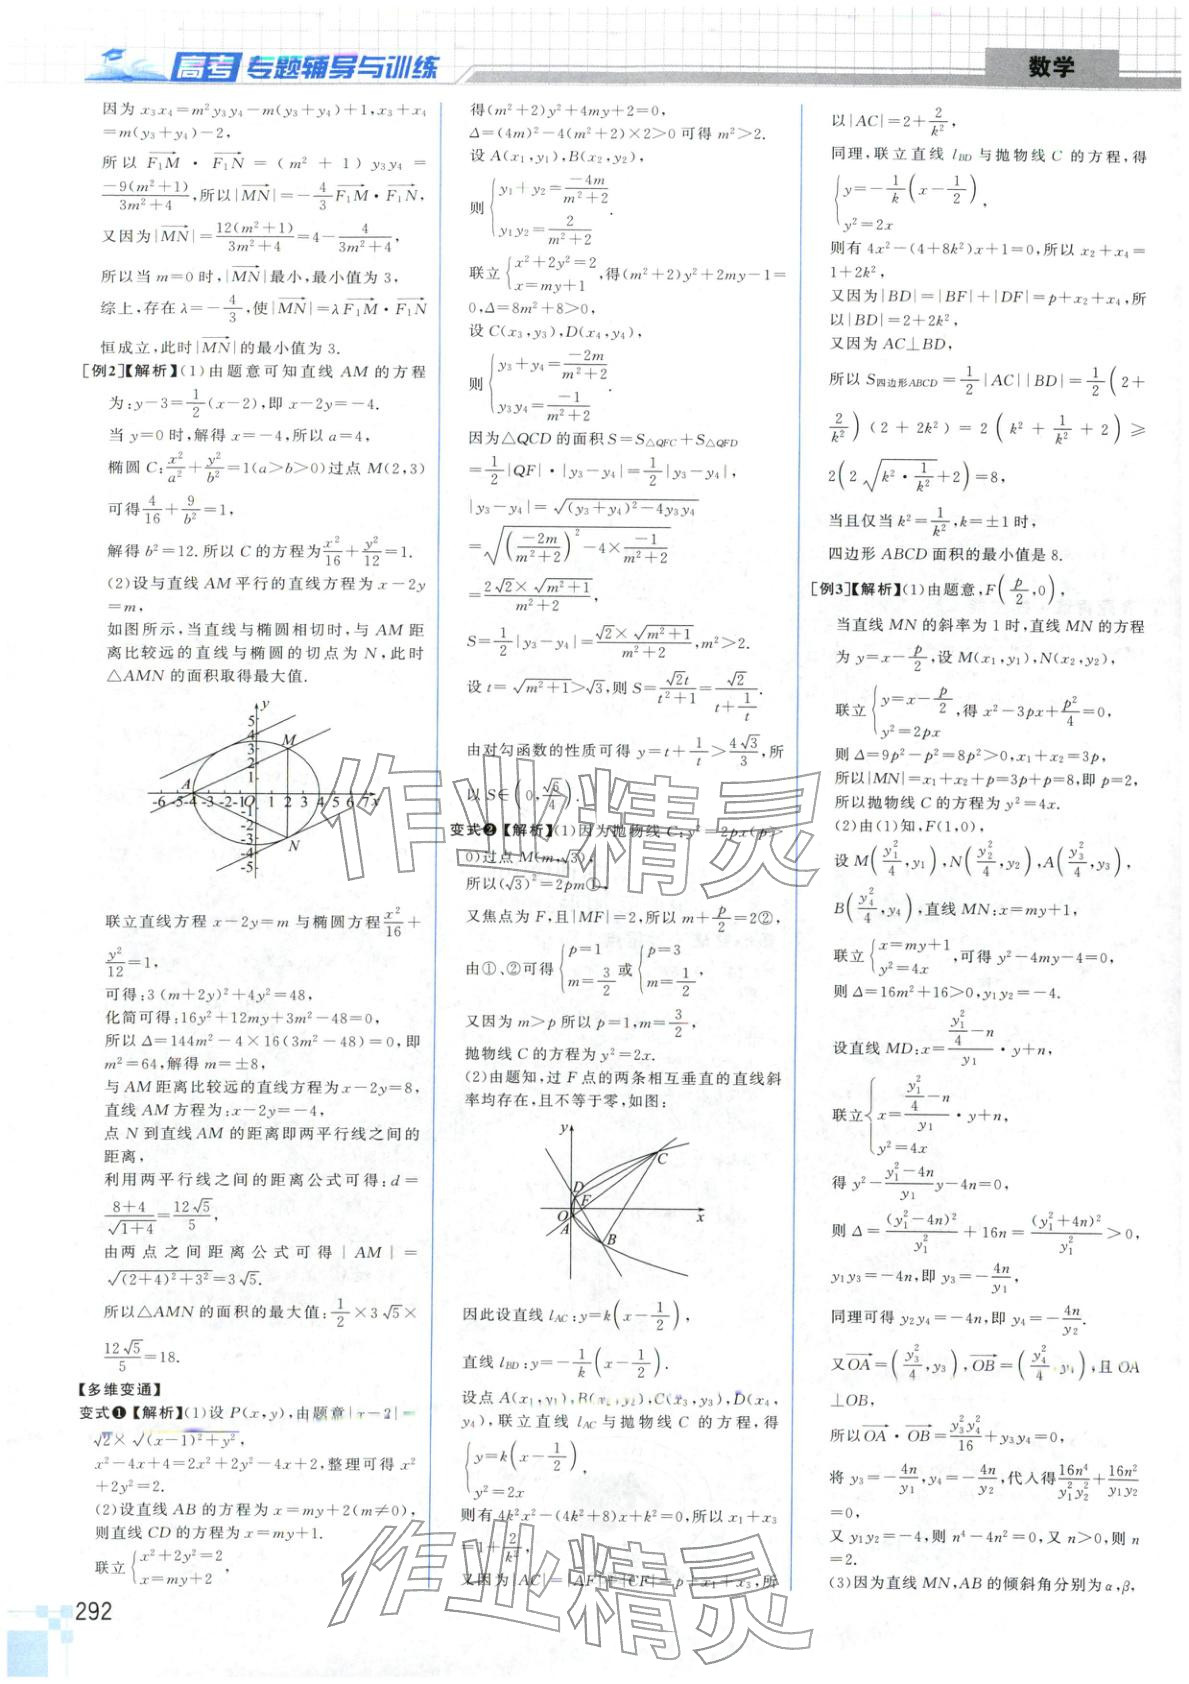 高考 专题辅导与训练
数学
因为 x₃x₄=m²y₃y₄-m(y₃+y₄)+1,x₃+x₄
=m(y₃+y₄)-2,
所以 F₁M→ · F₁N→ = (m² + 1) y₃y₄ =
-9(m²+1)/(3m²+4),所以|MN→|=-4/3 F₁M→·F₁N→,
又因为|MN→|=12(m²+1)/(3m²+4)=4-4/(3m²+4),
所以当 m=0 时,|MN→|最小,最小值为 3,
综上,存在 λ=-4/3,使|MN→|=λF₁M→·F₁N→
恒成立,此时|MN→|的最小值为 3.
[例2]【解析】(1)由题意可知直线 AM 的方程
为:y-3=1/2(x-2),即 x-2y=-4.
当 y=0 时,解得 x=-4,所以 a=4,
椭圆 C:x²/a²+y²/b²=1(a>b>0)过点 M(2,3)
可得4/16+9/b²=1,
解得 b²=12.所以 C 的方程为x²/16+y²/12=1.
(2)设与直线 AM 平行的直线方程为 x-2y
=m,
如图所示,当直线与椭圆相切时,与 AM 距
离比较远的直线与椭圆的切点为 N,此时
△AMN 的面积取得最大值.
y
5
4
3
2
1
M
A
-6 -5-4-3-2-1 O 1 2 3 4 5 6 7 x
-1
-2
-3
-4
-5
N
联立直线方程 x-2y=m 与椭圆方程x²/16+
y²/12=1,
可得:3(m+2y)²+4y²=48,
化简可得:16y²+12my+3m²-48=0,
所以 Δ=144m²-4×16(3m²-48)=0,即
m²=64,解得 m=±8,
与 AM 距离比较远的直线方程为 x-2y=8,
直线 AM 方程为:x-2y=-4,
点 N 到直线 AM 的距离即两平行线之间的
距离,
利用两平行线之间的距离公式可得:d=
(8+4)/√(1+4)=12√5/5,
由两点之间距离公式可得|AM|=
√((2+4)²+3²)=3√5.
所以△AMN 的面积的最大值:1/2×3√5×
12√5/5=18.
【多维变通】
变式❶【解析】(1)设 P(x,y),由题意|x-2|=
√2×√((x-1)²+y²),
x²-4x+4=2x²+2y²-4x+2,整理可得 x²
+2y²=2.
(2)设直线 AB 的方程为 x=my+2(m≠0),
则直线 CD 的方程为 x=my+1.
联立{x²+2y²=2
x=my+2,
292
得(m²+2)y²+4my+2=0,
Δ=(4m)²-4(m²+2)×2>0 可得 m²>2.
设 A(x₁,y₁),B(x₂,y₂),
则{y₁+y₂=-4m/(m²+2)
y₁y₂=2/(m²+2).
联立{x²+2y²=2
x=my+1,得(m²+2)y²+2my-1=
0,Δ=8m²+8>0,
设 C(x₃,y₃),D(x₄,y₄),
则{y₃+y₄=-2m/(m²+2)
y₃y₄=-1/(m²+2).
因为△QCD 的面积 S=S△QFC+S△QFD
=1/2|QF|·|y₃-y₄|=1/2|y₃-y₄|,
|y₃-y₄|=√((y₃+y₄)²-4y₃y₄)
=√((-2m/(m²+2))²-4×-1/(m²+2))
=2√2×√(m²+1)/(m²+2),
S=1/2|y₃-y₄|=√2×√(m²+1)/(m²+2),m²>2.
设 t=√(m²+1)>√3,则 S=√2t/(t²+1)=√2/(t+1/t).
由对勾函数的性质可得 y=t+1/t>4√3/3,所
以 S∈(0,√6/4).
变式❷【解析】(1)因为抛物线 C:y²=2px(p>
0)过点 M(m,√3),
所以(√3)²=2pm①,
又焦点为 F,且|MF|=2,所以 m+p/2=2②,
由①、②可得{p=1
m=3/2或{p=3
m=1/2,
又因为 m>p 所以 p=1,m=3/2,
抛物线 C 的方程为 y²=2x.
(2)由题知,过 F 点的两条相互垂直的直线斜
率均存在,且不等于零,如图:
y
C
D
F
O
x
A
B
因此设直线 lAC:y=k(x-1/2),
直线 lBD:y=-1/k(x-1/2).
设点 A(x₁,y₁),B(x₂,y₂),C(x₃,y₃),D(x₄,
y₄),联立直线 lAC 与抛物线 C 的方程,得
{y=k(x-1/2)
y²=2x,
则有 4k²x²-(4k²+8)x+k²=0,所以 x₁+x₃
=1+2/k²,
又因为|AC|=|AF|+|CF|=p+x₁+x₃,所
以|AC|=2+2/k²,
同理,联立直线 lBD 与抛物线 C 的方程,得
{y=-1/k(x-1/2)
y²=2x,
则有 4x²-(4+8k²)x+1=0,所以 x₂+x₄=
1+2k²,
又因为|BD|=|BF|+|DF|=p+x₂+x₄,所
以|BD|=2+2k²,
又因为 AC⊥BD,
所以 S四边形ABCD=1/2|AC||BD|=1/2(2+
2/k²)(2+2k²)=2(k²+1/k²+2)≥
2(2√(k²·1/k²)+2)=8,
当且仅当 k²=1/k²,k=±1 时,
四边形 ABCD 面积的最小值是 8.
[例3]【解析】(1)由题意,F(p/2,0),
当直线 MN 的斜率为 1 时,直线 MN 的方程
为 y=x-p/2,设 M(x₁,y₁),N(x₂,y₂),
联立{y=x-p/2
y²=2px,得 x²-3px+p²/4=0,
则 Δ=9p²-p²=8p²>0,x₁+x₂=3p,
所以|MN|=x₁+x₂+p=3p+p=8,即 p=2,
所以抛物线 C 的方程为 y²=4x.
(2)由(1)知,F(1,0),
设 M(y₁²/4,y₁),N(y₂²/4,y₂),A(y₃²/4,y₃),
B(y₄²/4,y₄),直线 MN:x=my+1,
联立{x=my+1
y²=4x,可得 y²-4my-4=0,
则 Δ=16m²+16>0,y₁y₂=-4.
设直线 MD:x=(y₁²/4-n)/y₁·y+n,
联立{x=(y₁²/4-n)/y₁·y+n,
y²=4x
得 y²-(y₁²-4n)/y₁ y-4n=0,
则 Δ=(y₁²-4n)²/y₁²+16n=(y₁²+4n)²/y₁²>0,
y₁y₃=-4n,即 y₃=-4n/y₁,
同理可得 y₂y₄=-4n,即 y₄=-4n/y₂.
又OA→=(y₃²/4,y₃),OB→=(y₄²/4,y₄),且 OA
⊥OB,
所以OA→·OB→=y₃²y₄²/16+y₃y₄=0,
将 y₃=-4n/y₁,y₄=-4n/y₂,代入得16n⁴/y₁²y₂²+16n²/y₁y₂
=0,
又 y₁y₂=-4,则 n⁴-4n²=0,又 n>0,则 n
=2.
(3)因为直线 MN,AB 的倾斜角分别为 α,β,
作业精灵
作业精灵